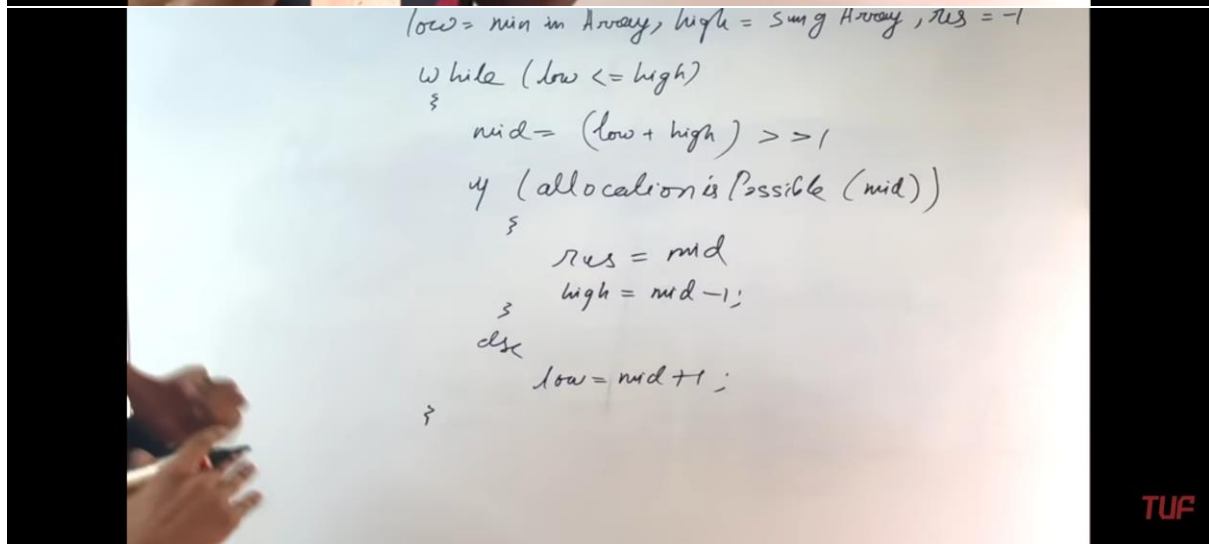 low = min in Array, high = sum of Array, res = -1
while (low <= high)
{
mid = (low + high) >>1
if (allocation is Possible (mid))
{
res = mid
high = mid -1;
}
else
low = mid +1 ;
}
TUF